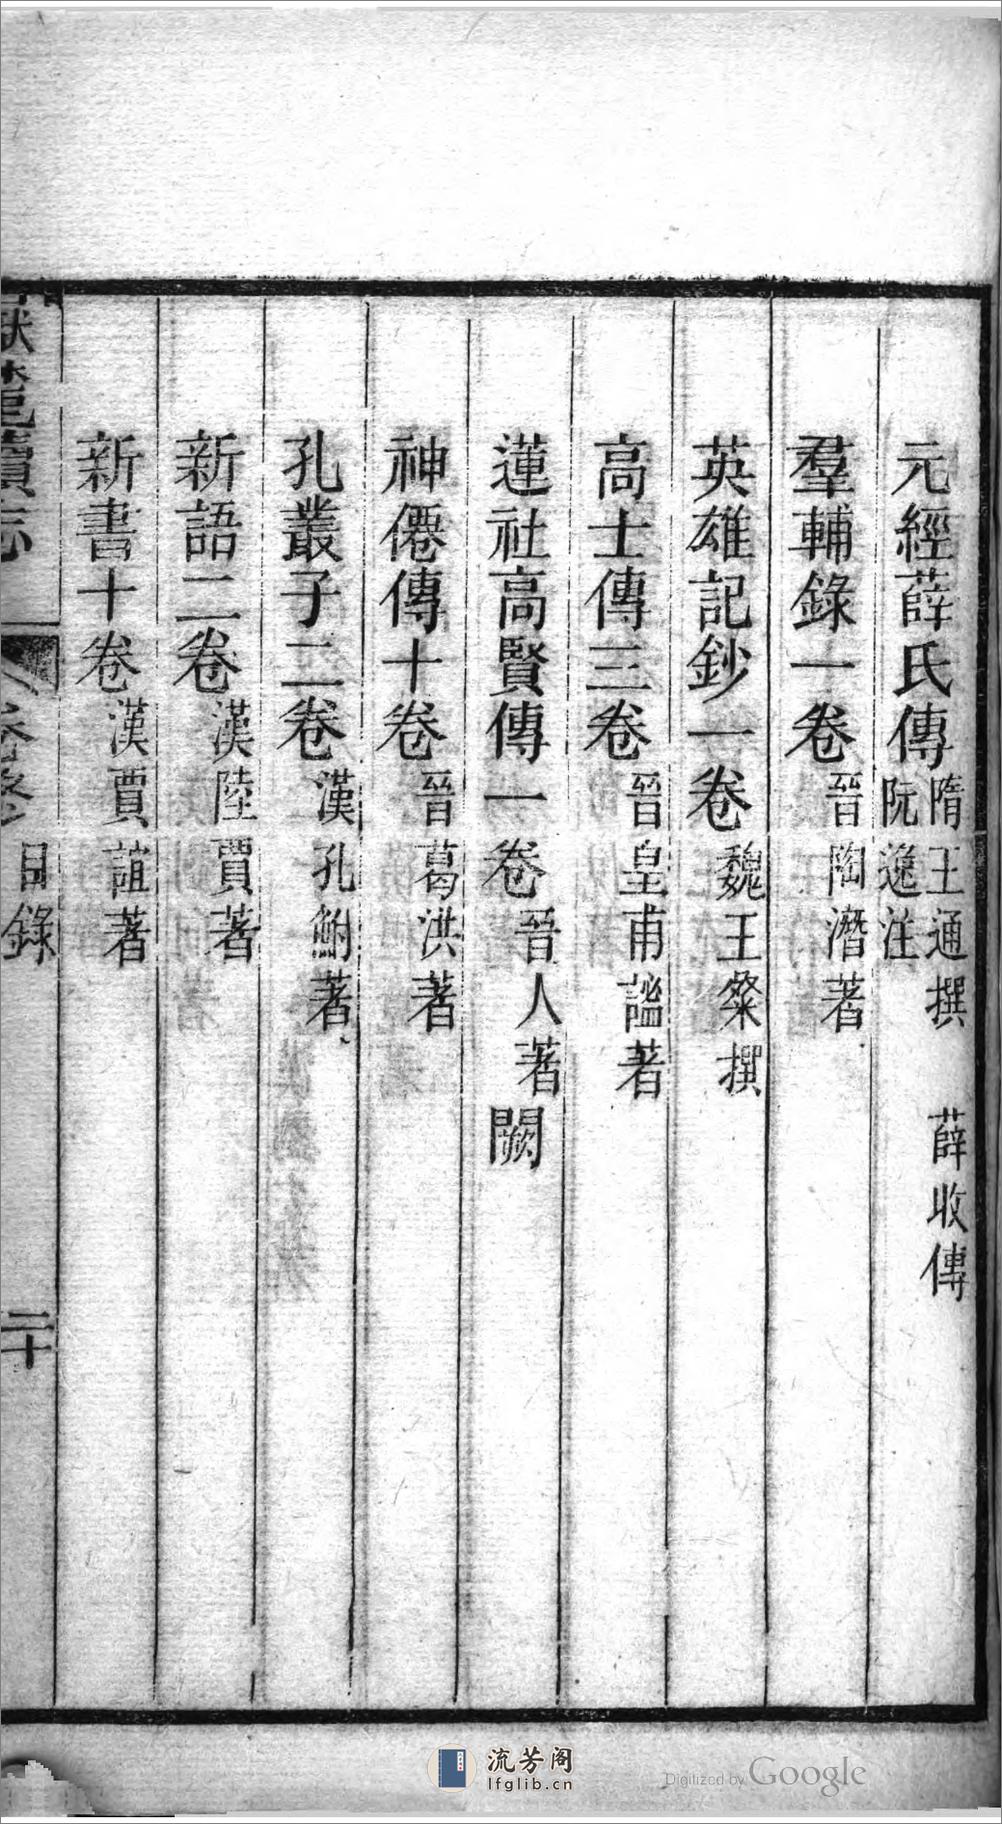 元經薛氏傳隋王通撰 薛收傳
阮逸注
羣輔錄一卷晉陶潛著
英雄記鈔一卷魏王粲撰
高士傳三卷晉皇甫謐著
蓮社高賢傳一卷晉人著闕
神僊傳十卷晉葛洪著
孔叢子二卷漢孔鮒著
新語二卷漢陸賈著
新書十卷漢賈誼著
目錄
二十
流芳阁
lfglib.cn
Digitized by Google